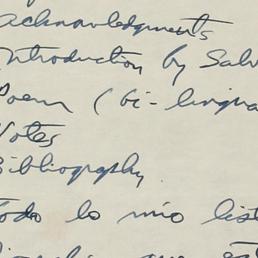 Acknowledgments
Introduction by Salv
Poem (bi-lingua
Notes
Bibliography
Todo lo mío list
que